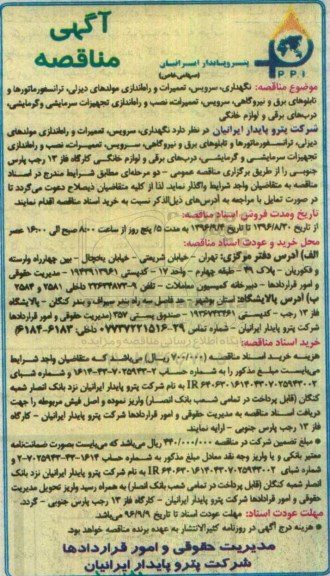 آگهی
مناقصه
پترو پایدار ایرانیان
(سهامی خاص)
P P I
موضوع مناقصه: نگهداری، سرویس، تعمیرات و راه‌اندازی مولدهای دیزلی، ترانسفورماتورها و
تابلوهای برق و نیروگاهی، سرویس، تعمیرات، نصب و راه‌اندازی تجهیزات سرمایشی و گرمایشی،
درب‌های برقی و لوازم خانگی
شرکت پترو پایدار ایرانیان در نظر دارد نگهداری، سرویس، تعمیرات و راه‌اندازی مولدهای
دیزلی، ترانسفورماتورها و تابلوهای برق و نیروگاهی، سرویس، تعمیرات، نصب و راه‌اندازی
تجهیزات سرمایشی و گرمایشی، درب‌های برقی و لوازم خانگی کارگاه فاز ۱۳ رجب پارس
جنوبی را از طریق برگزاری مناقصه عمومی - دو مرحله‌ای مطابق شرایط مندرج در اسناد
مناقصه به متقاضیان واجد شرایط واگذار نماید. لذا از کلیه متقاضیان ذیصلاح دعوت می‌گردد تا
در صورت تمایل با مراجعه به آدرس‌های ذیل‌الذکر نسبت به خرید اسناد مناقصه اقدام نمایند.
تاریخ و مدت فروش اسناد مناقصه:
از تاریخ ۱۳۹۶/۸/۳۰ تا تاریخ ۱۳۹۶/۹/۴ به مدت ۵/ پنج روز از ساعت ۸:۰۰ صبح الی ۱۶:۰۰ عصر
محل خرید و عودت اسناد مناقصه:
الف) آدرس دفتر مرکزی: تهران - خیابان شریعتی - خیابان یخچال - بین چهارراه ولرسته
و فکوریان - پلاک ۴۹ - طبقه چهارم - واحد ۱۷ - کدپستی ۱۹۳۹۹۱۳۹۶۱ - مدیریت حقوقی
و امور قراردادها - دبیرخانه کمیسیون معاملات - تلفن ۹-۲۲۶۳۴۸۷۳ داخلی ۲۵۸۱ و ۲۵۸۴
ب) آدرس پالایشگاه: استان بوشهر - حد فاصل سه راه بندر سیراف و بندر کنگان - پالایشگاه
فاز ۱۳ رجب - کدپستی - صندوق پستی ۳۵۷ (مدیریت حقوقی و امور قراردادها
شرکت پترو پایدار ایرانیان - شماره تماس ۳۹-۰۷۷۳۷۲۲۱۵۱۶ داخلی ۶۱۸۳-۶۱۸۴)
خرید اسناد مناقصه:
هزینه خرید اسناد مناقصه (۷۰۰/۰۰۰) ریال می‌باشد که متقاضیان واجد شرایط
می‌بایست مبلغ مذکور را به شماره حساب و شماره شبای
به نام شرکت پترو پایدار ایرانیان نزد بانک انصار شعبه
کنگان (قابل پرداخت در تمامی شعب بانک انصار) واریز نموده و اصل فیش مربوطه را جهت
دریافت اسناد مناقصه به مدیریت حقوقی و امور قراردادها شرکت پترو پایدار ایرانیان - کارگاه
فاز ۱۳ رجب پارس جنوبی - ارایه نمایند.
* مبلغ تضمین شرکت در مناقصه ۴۴۰/۰۰۰/۰۰۰ ریال می‌باشد که می‌بایست بصورت ضمانت‌نامه
معتبر بانکی و یا واریز وجه نقد معادل مبلغ مذکور به شماره حساب و
شماره شبای به نام شرکت پترو پایدار ایرانیان نزد بانک
انصار شعبه کنگان (قابل پرداخت در تمامی شعب بانک انصار) به همراه رسید واریز تحویل مدیریت
حقوقی و امور قراردادها شرکت پترو پایدار ایرانیان - کارگاه فاز ۱۳ رجب پارس جنوبی - گردد.
مهلت عودت اسناد: مهلت عودت اسناد تا تاریخ ۹۶/۹/۹ می‌باشد.
* هزینه درج آگهی در روزنامه کثیرالانتشار به عهده برنده مناقصه خواهد بود.
مدیریت حقوقی و امور قراردادها
شرکت پترو پایدار ایرانیان